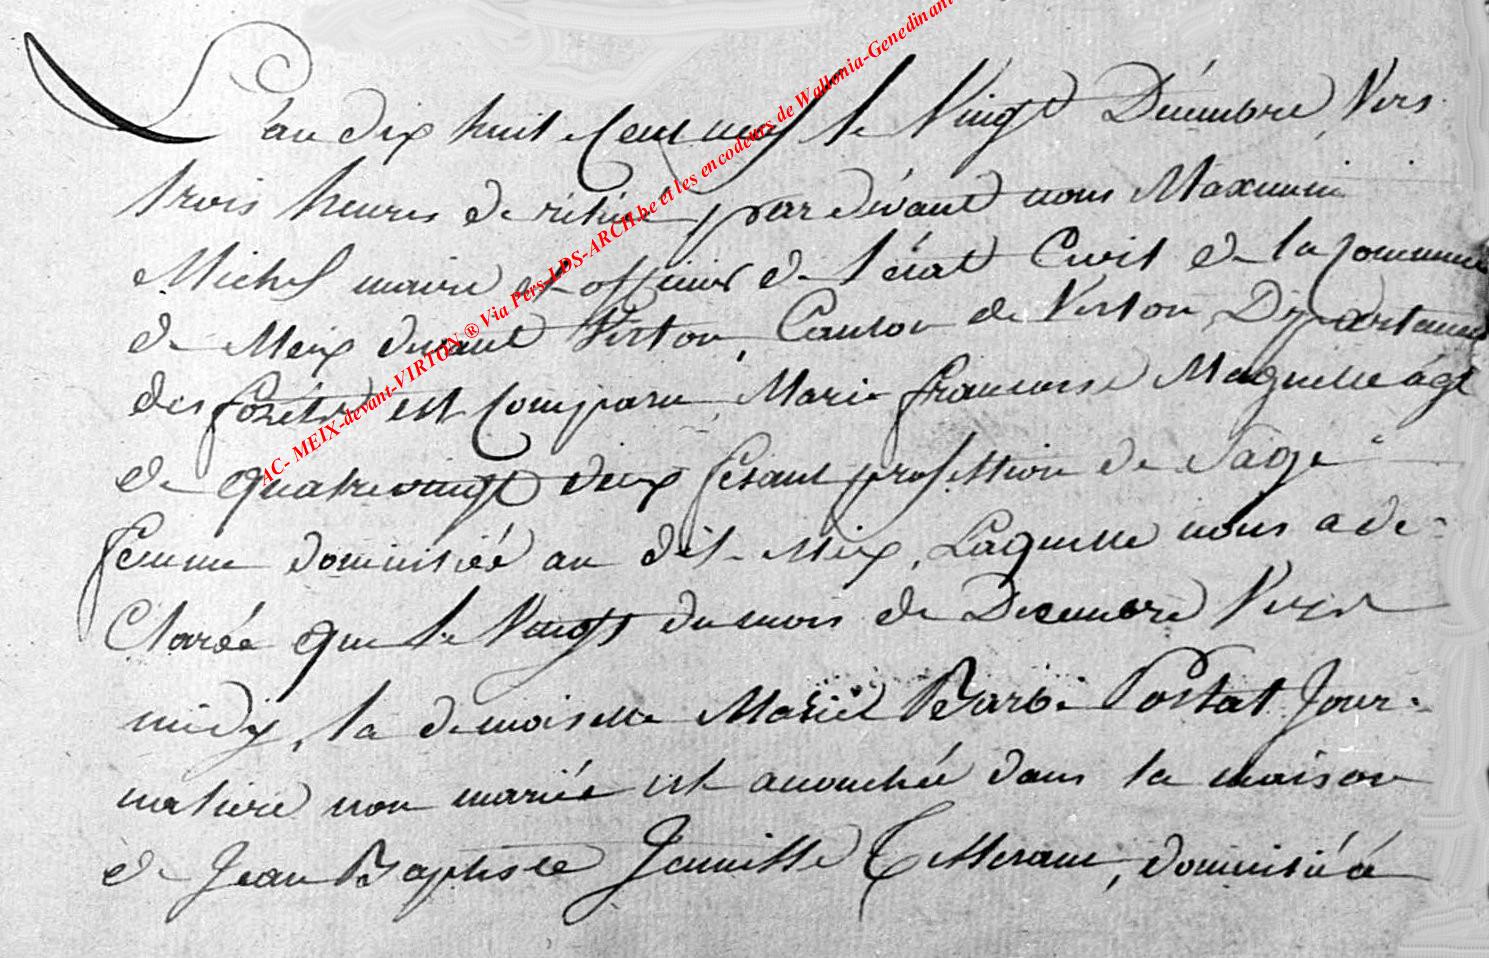 L'an dix huit Cent neuf le Vingt Décembre Vers
trois heures de rélévé par dévant nous Maximin
Michel maire et officier de l'état Civil de la Commune
de Meix devant Virton, Canton de Virton Département
des forêts est Comparu Marie françoise âgé
de quatrevingt deux fesant profession de Sage
femme domicilié au dit Meix, Laquelle nous a de-
Clarée que le Vingt du mois de Decembre Vers
midy, la demoiselle Marie Barbe Postat Jour-
naliere non mariée est acouchée dans la maison
de Jean Baptiste Tisserant, domicilié à
AC- MEIX-devant-VIRTON ® Via Pers-LDS-ARCH.be et les encodeurs de Wallonia-Genedinant